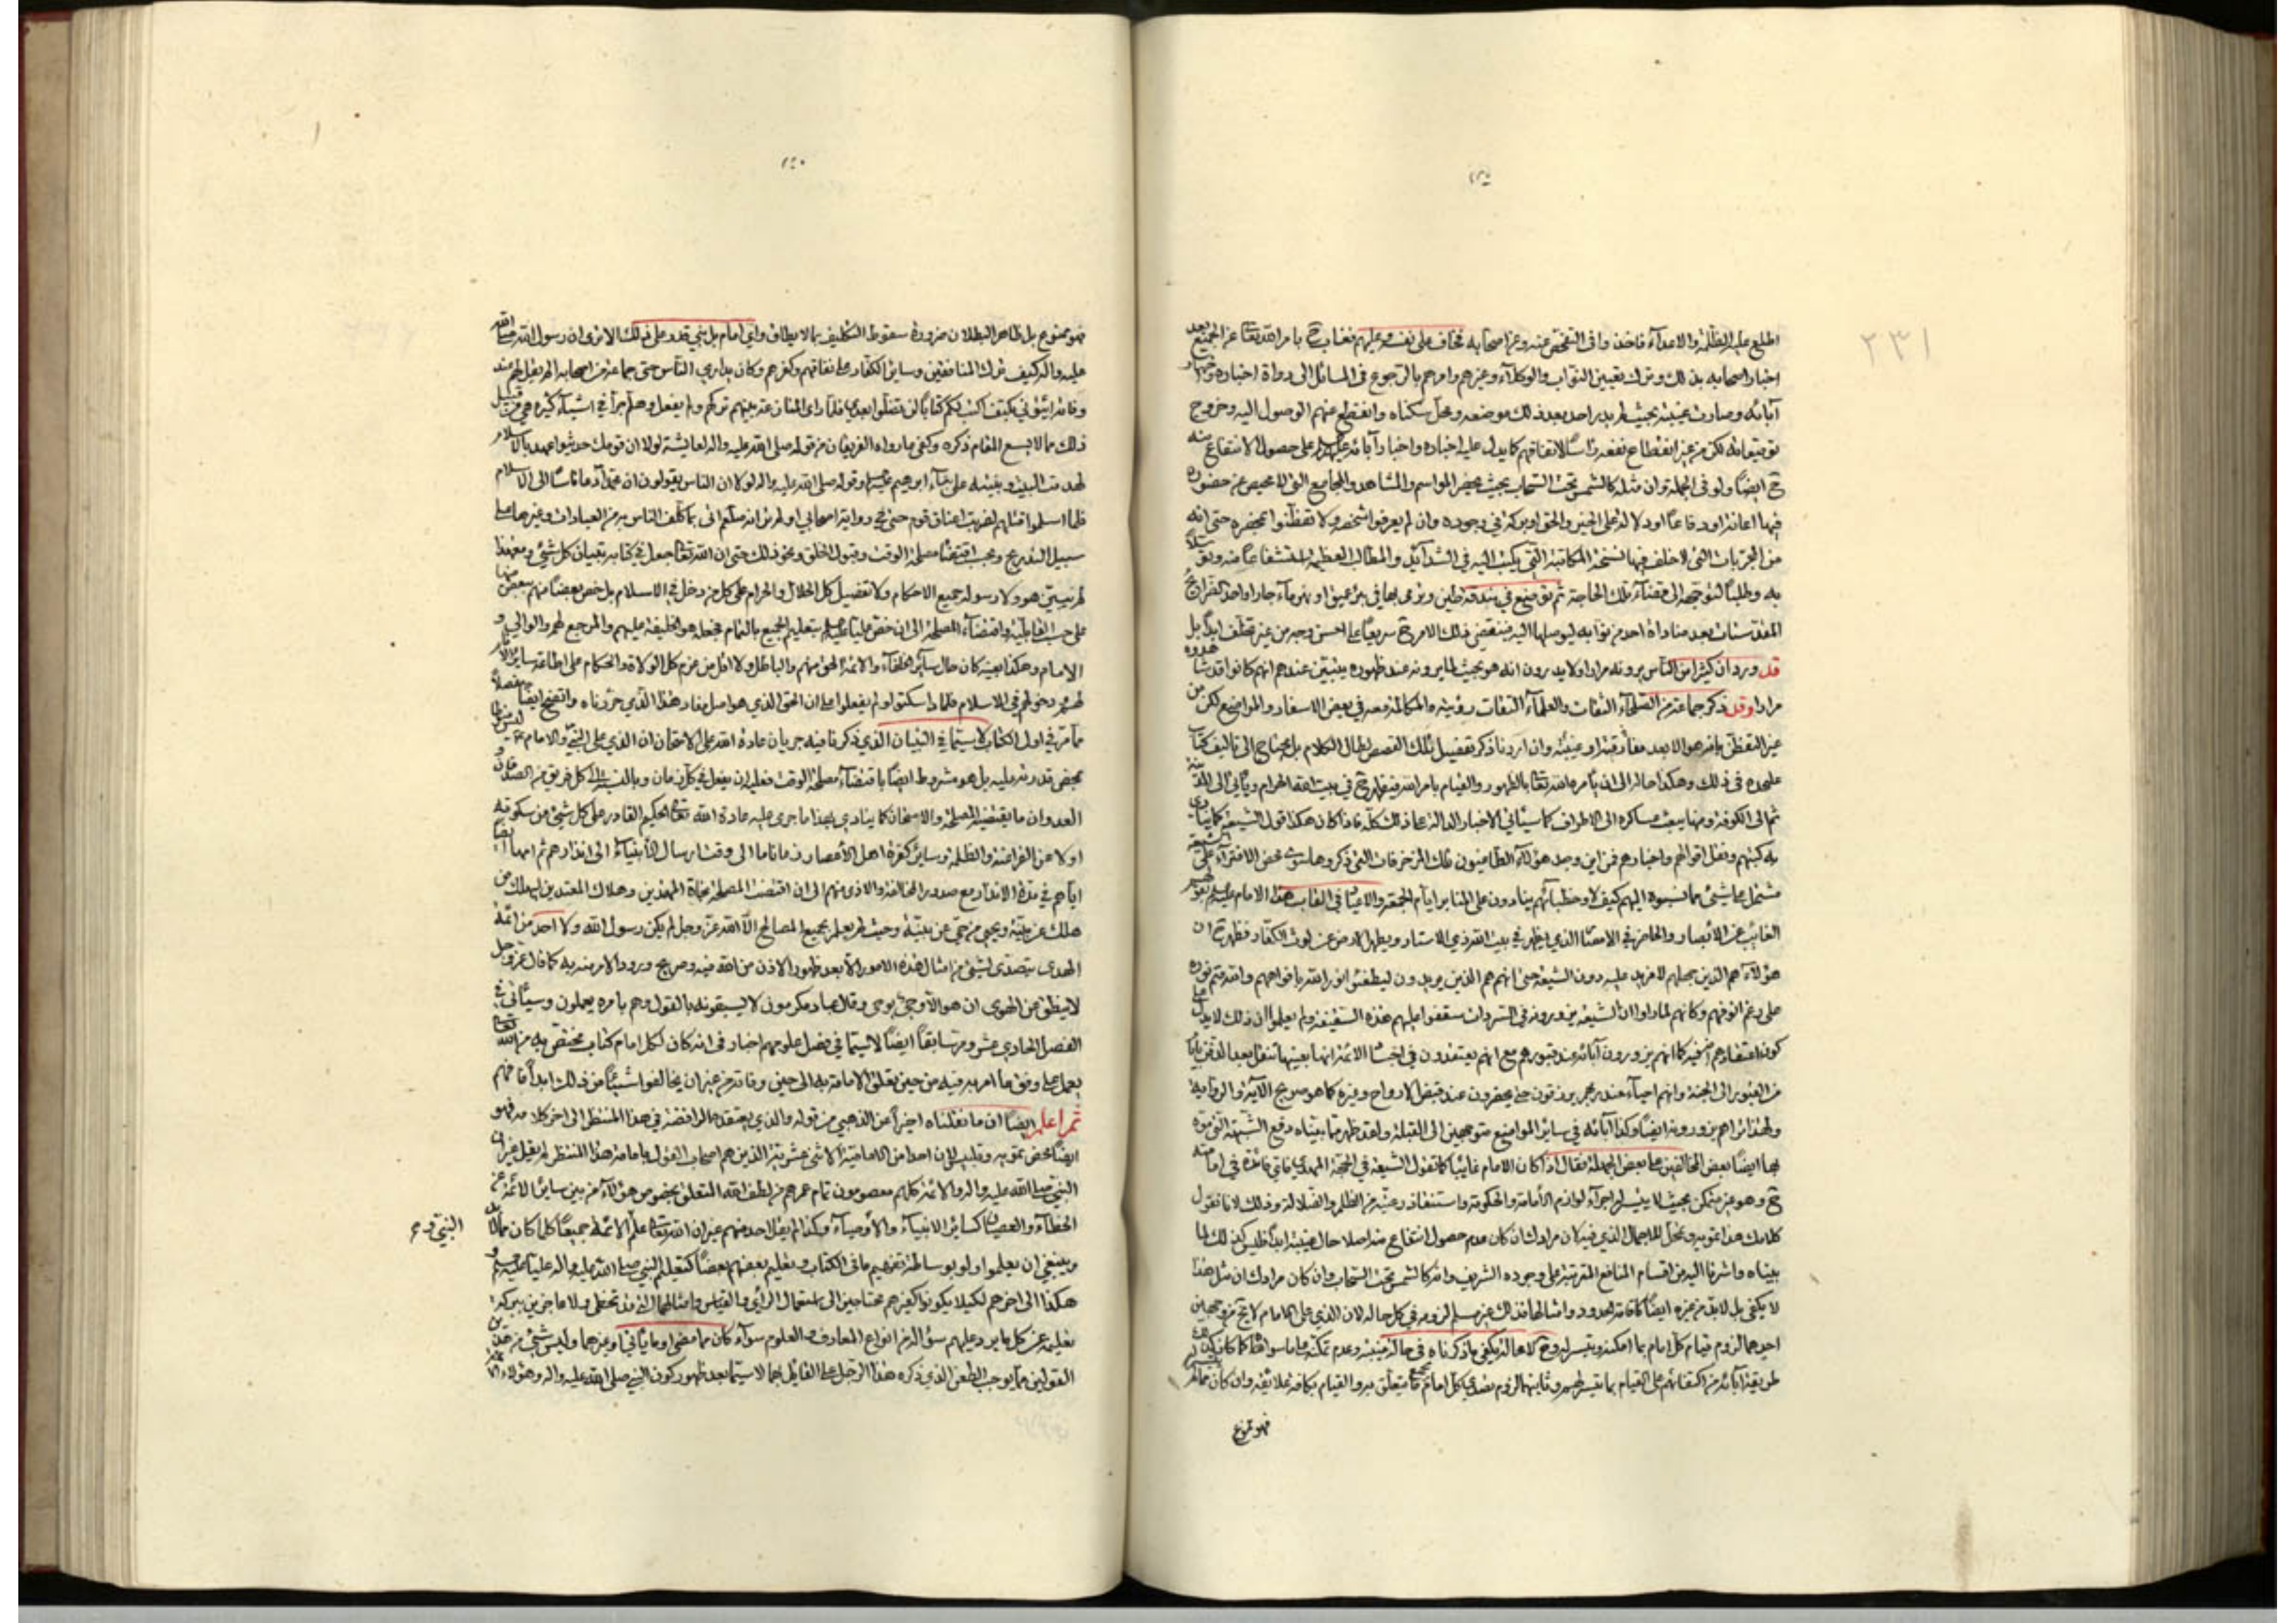 ٢٣١
اطلع عليه الظلمة والاعداء فاخذوا في التفحص عنه وعن اصحابه فخاف على نفسه وعليهم فغاب ح بامر الله تعالى عن الجميع بعد
اخبار اصحابه بذلك وترك تعيين النواب والوكلاء وغيرهم وامرهم بالرجوع في المسائل الى رواة اخباره واخبار
آبائه وصارت غيبته بحيث لم يدر احد بعد ذلك موضعه ومحل سكناه وانقطع عنهم الوصول اليه وخروج
توقيعاته لكن من غير انقطاع نفعه رأسا لاتفاقهم كما يدل عليه اخباره واخبار آبائه على حصول الانتفاع منه
ح ايضا ولو في الجملة وان مثله كالشمس تحت السحاب بحيث يحضر المواسم والمشاهد والمجامع التي لا محيص عن حضوره
فيها اعانة او دفاعا او دلالة على الخير والحق او بركة في وجوده وان لم يعرفوا شخصه ولا تفطنوا بمحضره حتى انه
من المجربات التي لا خلف فيها نسخة المكاتبة التي يكتب اليه في الشدائد والمطالب العظيمة استشفاعا منه وتوسلا
به وطلبا لتوجهه الى قضاء تلك الحاجة ثم توضع في بندقة طين وترمى بها في بئر عميق او نهر ماء جار او احد الضرائح
المقدسات بعد مناداة احد من نوابه ليوصلها اليه فينقضي ذلك الامر ح سريعا على احسن وجه من غير تخلف ابدا بل
قد ورد ان كثيرا من الناس يرونه مرارا ولا يدرون انه هو بحيث لما يرونه عند ظهوره يتبين عندهم انهم كانوا قد شاهدوه
مرارا وقد ذكر جماعة من الصلحاء الثقات والعلماء الثقات رؤيته والمكالمة معه في بعض الاسفار والمواضع لكن من
غير التفطن بانه هو الا بعد مفارقته او غيبته وان اردنا ذكر تفصيل تلك القصص لطال الكلام بل يحتاج الى تاليف كتاب
عليحده في ذلك وهكذا حاله الى ان يأمره الله تعالى بالظهور والقيام بامر الله فيظهر ح في بيت الله الحرام ويأتي الى المدينة
ثم الى الكوفة ومنها يبعث عساكره الى الاطراف كما سيأتي الاخبار الدالة على ذلك كله فاذا كان هكذا قول الشيعة كما ينادي
به كتبهم ونقل اقوالهم واخبارهم فمن اين وجد هؤلاء الطاعنون تلك المزخرفات التي ذكروها سوى محض الافتراء على الشيعة
مشتمل على شيء مما نسبوه اليهم كيف لا وخطباؤهم ينادون على المنابر ايام الجمعة والاعياد في القاب هذا الامام
الغائب عن الابصار والحاضر في الامصار الذي يظهر في بيت الله ذي الاستار ويطهر الارض عن لوث الكفار فظهر ح ان
هؤلاء هم الذين بجهلهم لا مزيد عليه دون الشيعة حتى انهم هم الذين يريدون ليطفئوا نور الله بافواههم والله متم نوره
على رغم انوفهم وكانهم لما راوا ان الشيعة يزورونه في السرداب سقفوا عليهم هذه السقيفة ولم يعلموا ان ذلك لا يدل على
كون اعتقادهم انه فيه كما انهم يزورون آبائه عند قبورهم مع انهم يعتقدون في اجساد الائمة انها بعينها تنقل بعد الدفن بايام
من القبور الى الجنة وانهم احياء عند ربهم يرزقون حتى يحضرون عند قبض الارواح وغيره كما هو صريح الآية والرواية
ولهذا تراهم يزورونه ايضا وكذا آبائه في سائر المواضع متوجهين الى القبلة ولقد ظهر مما بيناه دفع الشبهة التي موه
بها ايضا بعض المخالفين على بعض الجهلة فقال اذا كان الامام غائبا كما تقول الشيعة في الحجة المهدي فاي فائدة في امامته
ح وهو غير متمكن بحيث لا يتيسر له اجراء لوازم الامامة والحكومة واستنقاذ رعيته من الظلم والضلالة وذلك لانا نقول
كلامك هذا تمويه وتمحل للاجمال الذي فيه لان مرادك ان كان عدم حصول انتفاع منه اصلا حال غيبته ابدا فليس كذلك لما
بيناه واشرنا اليه من اقسام المنافع المترتبة على وجوده الشريف وانه كالشمس تحت السحاب وان كان مرادك ان مثل هذا
لا يكفي بل لا بد من غيره ايضا كاقامة الحدود وامثالها فذلك غير مسلم لزومه في كل حال لان الذي على الامام لا يخ من وجهين
احدهما لزوم قيام كل امام بما امكنه وتيسر له وح لا محالة يكفي ما ذكرناه في حالة غيبته وعدم تمكنه على ما سواه كما كان
طريقة آبائه من اكتفائهم على القيام بما تيسر لهم وثانيهما لزوم تصدي كل امام بجميع ما يتعلق به والقيام بكافة علائقه وان كان مما لم يتيسر له
فهو ممنوع
فهو ممنوع بل ظاهر البطلان ضرورة سقوط التكليف بما لا يطاق واي امام بل نبي قدر على ذلك الا ترى ان رسول الله صلى الله
عليه واله كيف ترك المنافقين وسائر الكفار على نفاقهم وكفرهم وكان يداري الناس حتى جماعة من اصحابه الم يقل لهم عند
وفاته ائتوني بكتف اكتب لكم كتابا لن تضلوا بعدي فلما راى المنازعة بينهم تركهم ولم يفعل وهلم جرا في اشياء كثيرة من قبيل
ذلك مما لا يسع المقام ذكره وكفى ما رواه الفريقان من قوله صلى الله عليه واله لعائشة لولا ان قومك حديثوا عهد بالاسلام
لهدمت البيت وبنيته على بناء ابراهيم وقوله صلى الله عليه واله لولا ان الناس يقولون ان محمدا دعا ناسا الى الاسلام
فلما اسلموا قتلهم لضربت اعناق قوم حتى في رواية اصحابي اولم تر انه صلعم انى بما كلف الناس به من العبادات وغيرها على
سبيل التدريج وبحسب اقتضاء مصلحة الوقت وقبول الخلق ونحو ذلك حتى ان الله تعالى جعل في كتابه تبيان كل شيء ومع هذا
لم يبين هو ولا رسوله جميع الاحكام ولا تفصيل كل الحلال والحرام على كل من دخل في الاسلام بل خص بعضا منهم ببعض منها
على حسب القابلية واقتضاء المصلحة الى ان خص عليا بتعليم الجميع بالتمام فجعله هو الخليفة عليهم والمرجع لهم والوالي و
الامام وهكذا بعينه كان حال سائر الخلفاء والائمة الحق منهم والباطل ولا اقل من عزم كل الولاة والحكام على اطاعة سائر الامم
لهم ودخولهم في الاسلام فلما لم يفعلوا علم ان الحق الذي هو اصل مفاد هذا الذي حررناه واتضح ايضا مفصلا
مما مر في اول الكتاب لا سيما في التبيان الذي ذكرنا فيه جريان عادة الله على الامتحان ان الذي على النبي والامام ليس منوطا
بمحض قدرته عليه بل هو مشروط ايضا باقتضاء مصلحة الوقت فعليه ان يفعل في كل زمان وبالنسبة الى كل فريق من الصداقة و
العدوان ما يقتضيه المصلحة والامتحان كما ينادي بهذا ما جرى عليه عادة الله تعالى الحكيم القادر على كل شيء من سكوته
اولا عن الفراعنة والظلمة وسائر كفرة اهل الاعصار زمانا ما الى وقت ارسال الانبياء الى انذارهم ثم امهاله ايضا
اياهم في مدة الانذار مع صدور المخالفة والاذى منهم الى ان اقتضت المصلحة نجاة المهتدين وهلاك المعتدين ليهلك من
هلك عن بينة ويحيى من حي عن بينة وحيث لم يعلم بجميع المصالح الا الله عز وجل لم يكن رسول الله ولا احد من ائمة
الهدى يتصدى لشيء من امثال هذه الامور الا بعد ظهور الاذن من الله فيه وصريح ورود الامر منه به كما قال عز وجل
لا ينطق عن الهوى ان هو الا وحي يوحى وقال عباد مكرمون لا يسبقونه بالقول وهم بامره يعملون وسيأتي في
الفصل الحادي عشر ومر سابقا ايضا لا سيما في فصل علومهم اخبار في انه كان لكل امام كتاب مختص به من الله تعالى
يعمل على وفق ما امر به فيه من حين تعلق الامامة به الى حين وفاته من غير ان يخالفوا شيئا من ذلك ابدا فافهم
ثم اعلم ايضا ان ما نقلناه اخيرا عن الذهبي من قوله والذي يعتقده الرافضة في هذا المنتظر الى اخر كلامه فهو
ايضا محض تمويه وتلبيس لان احدا من الامامية الاثني عشرية الذين هم اصحاب القول بامامة هذا المنتظر لم يقل غير ان
النبي صلى الله عليه واله والائمة كلهم معصومون تمام عمرهم من لطف الله المتعلق بخصوص هؤلاء من بين سائر الائمة عن
الخطاء والعصيان كسائر الانبياء والاوصياء وكذا لم يقل احد منهم غير ان الله تعالى علم الائمة جميعا كلما كان مما لا بد
النبي و
وينبغي ان يعلموا ولو بوساطة تفهيم ما في الكتاب وتعليم بعضهم بعضا كتعليم النبي صلى الله عليه واله عليا و
هكذا الى اخرهم لكيلا يكونوا كغيرهم محتاجين الى استعمال الراي والقياس وامثالهما ولا عاجزين ببركة
تعليمه عن كل ما يرد عليهم سؤاله من انواع المعارف والعلوم سواء كان مما مضى او ما يأتي او غيرهما وليس شيء من هذين
القولين مما يوجب الطعن الذي ذكره هذا الرجل على القائل بها لا سيما بعد ظهور كون النبي صلى الله عليه واله وهؤلاء